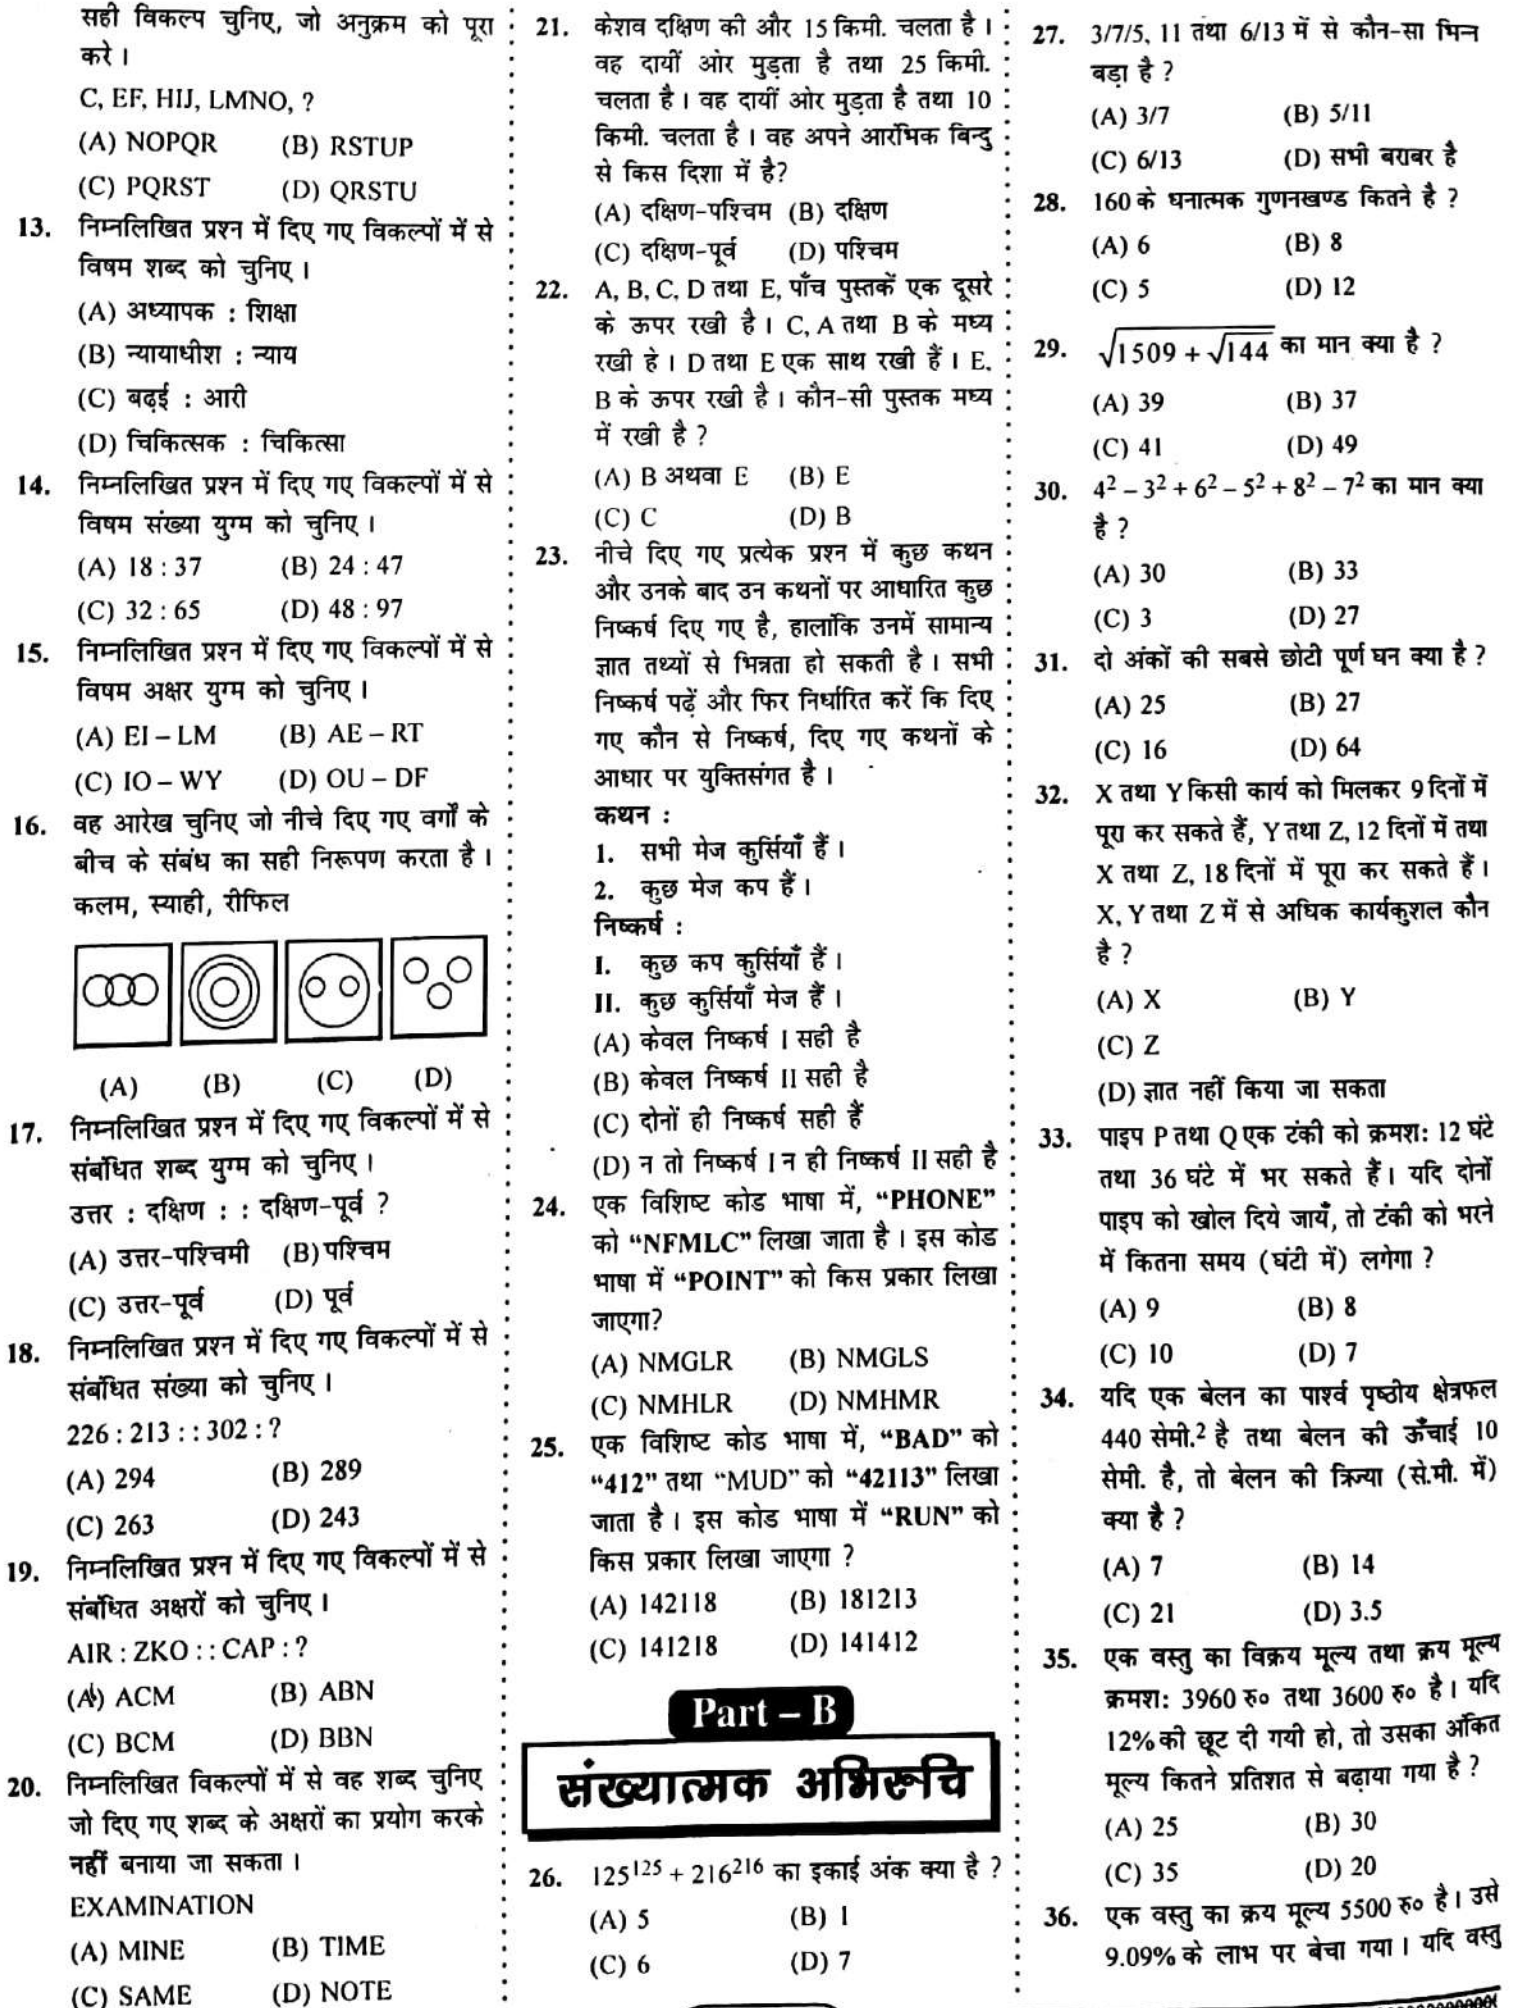 सही विकल्प चुनिए, जो अनुक्रम को पूरा
करे ।
C, EF, HIJ, LMNO, ?
(A) NOPQR (B) RSTUP
(C) PQRST (D) QRSTU
13. निम्नलिखित प्रश्न में दिए गए विकल्पों में से
विषम शब्द को चुनिए ।
(A) अध्यापक : शिक्षा
(B) न्यायाधीश : न्याय
(C) बढ़ई : आरी
(D) चिकित्सक : चिकित्सा
14. निम्नलिखित प्रश्न में दिए गए विकल्पों में से
विषम संख्या युग्म को चुनिए ।
(A) 18 : 37 (B) 24 : 47
(C) 32 : 65 (D) 48 : 97
15. निम्नलिखित प्रश्न में दिए गए विकल्पों में से
विषम अक्षर युग्म को चुनिए ।
(A) EI – LM (B) AE – RT
(C) IO – WY (D) OU – DF
16. वह आरेख चुनिए जो नीचे दिए गए वर्गों के
बीच के संबंध का सही निरूपण करता है ।
कलम, स्याही, रीफिल
(A) (B) (C) (D)
17. निम्नलिखित प्रश्न में दिए गए विकल्पों में से
संबंधित शब्द युग्म को चुनिए ।
उत्तर : दक्षिण : : दक्षिण-पूर्व ?
(A) उत्तर-पश्चिमी (B) पश्चिम
(C) उत्तर-पूर्व (D) पूर्व
18. निम्नलिखित प्रश्न में दिए गए विकल्पों में से
संबंधित संख्या को चुनिए ।
226 : 213 : : 302 : ?
(A) 294 (B) 289
(C) 263 (D) 243
19. निम्नलिखित प्रश्न में दिए गए विकल्पों में से
संबंधित अक्षरों को चुनिए ।
AIR : ZKO : : CAP : ?
(A) ACM (B) ABN
(C) BCM (D) BBN
20. निम्नलिखित विकल्पों में से वह शब्द चुनिए
जो दिए गए शब्द के अक्षरों का प्रयोग करके
नहीं बनाया जा सकता ।
EXAMINATION
(A) MINE (B) TIME
(C) SAME (D) NOTE
21. केशव दक्षिण की और 15 किमी. चलता है ।
वह दायीं ओर मुड़ता है तथा 25 किमी.
चलता है । वह दायीं ओर मुड़ता है तथा 10
किमी. चलता है । वह अपने आरंभिक बिन्दु
से किस दिशा में है?
(A) दक्षिण-पश्चिम (B) दक्षिण
(C) दक्षिण-पूर्व (D) पश्चिम
22. A, B, C, D तथा E, पाँच पुस्तकें एक दूसरे
के ऊपर रखी है । C, A तथा B के मध्य
रखी हे । D तथा E एक साथ रखी हैं । E,
B के ऊपर रखी है । कौन-सी पुस्तक मध्य
में रखी है ?
(A) B अथवा E (B) E
(C) C (D) B
23. नीचे दिए गए प्रत्येक प्रश्न में कुछ कथन
और उनके बाद उन कथनों पर आधारित कुछ
निष्कर्ष दिए गए है, हालांकि उनमें सामान्य
ज्ञात तथ्यों से भिन्नता हो सकती है । सभी
निष्कर्ष पढ़ें और फिर निर्धारित करें कि दिए
गए कौन से निष्कर्ष, दिए गए कथनों के
आधार पर युक्तिसंगत है ।
कथन :
1. सभी मेज कुर्सियाँ हैं ।
2. कुछ मेज कप हैं ।
निष्कर्ष :
I. कुछ कप कुर्सियाँ हैं ।
II. कुछ कुर्सियाँ मेज हैं ।
(A) केवल निष्कर्ष I सही है
(B) केवल निष्कर्ष II सही है
(C) दोनों ही निष्कर्ष सही हैं
(D) न तो निष्कर्ष I न ही निष्कर्ष II सही है
24. एक विशिष्ट कोड भाषा में, “PHONE”
को “NFMLC” लिखा जाता है । इस कोड
भाषा में “POINT” को किस प्रकार लिखा
जाएगा?
(A) NMGLR (B) NMGLS
(C) NMHLR (D) NMHMR
25. एक विशिष्ट कोड भाषा में, “BAD” को
“412” तथा “MUD” को “42113” लिखा
जाता है । इस कोड भाषा में “RUN” को
किस प्रकार लिखा जाएगा ?
(A) 142118 (B) 181213
(C) 141218 (D) 141412
Part – B
संख्यात्मक अभिरूचि
26. 125¹²⁵ + 216²¹⁶ का इकाई अंक क्या है ?
(A) 5 (B) 1
(C) 6 (D) 7
27. 3/7/5, 11 तथा 6/13 में से कौन-सा भिन्न
बड़ा है ?
(A) 3/7 (B) 5/11
(C) 6/13 (D) सभी बराबर है
28. 160 के घनात्मक गुणनखण्ड कितने है ?
(A) 6 (B) 8
(C) 5 (D) 12
29. √(1509 + √144) का मान क्या है ?
(A) 39 (B) 37
(C) 41 (D) 49
30. 4² – 3² + 6² – 5² + 8² – 7² का मान क्या
है ?
(A) 30 (B) 33
(C) 3 (D) 27
31. दो अंकों की सबसे छोटी पूर्ण घन क्या है ?
(A) 25 (B) 27
(C) 16 (D) 64
32. X तथा Y किसी कार्य को मिलकर 9 दिनों में
पूरा कर सकते हैं, Y तथा Z, 12 दिनों में तथा
X तथा Z, 18 दिनों में पूरा कर सकते हैं ।
X, Y तथा Z में से अधिक कार्यकुशल कौन
है ?
(A) X (B) Y
(C) Z
(D) ज्ञात नहीं किया जा सकता
33. पाइप P तथा Q एक टंकी को क्रमश: 12 घंटे
तथा 36 घंटे में भर सकते हैं । यदि दोनों
पाइप को खोल दिये जायँ, तो टंकी को भरने
में कितना समय (घंटी में) लगेगा ?
(A) 9 (B) 8
(C) 10 (D) 7
34. यदि एक बेलन का पार्श्व पृष्ठीय क्षेत्रफल
440 सेमी.² है तथा बेलन की ऊँचाई 10
सेमी. है, तो बेलन की त्रिज्या (से.मी. में)
क्या है ?
(A) 7 (B) 14
(C) 21 (D) 3.5
35. एक वस्तु का विक्रय मूल्य तथा क्रय मूल्य
क्रमश: 3960 रु० तथा 3600 रु० है । यदि
12% की छूट दी गयी हो, तो उसका अंकित
मूल्य कितने प्रतिशत से बढ़ाया गया है ?
(A) 25 (B) 30
(C) 35 (D) 20
36. एक वस्तु का क्रय मूल्य 5500 रु० है । उसे
9.09% के लाभ पर बेचा गया । यदि वस्तु